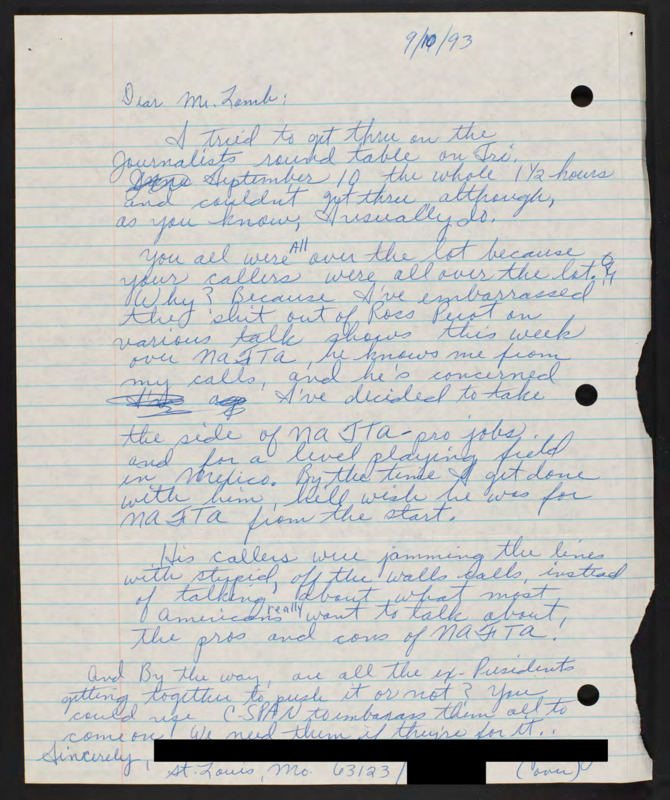 9/10/93
Dear Mr. Lamb:
I tried to get thru on the
Journalists round table on Fri.
September 10 the whole 1 1/2 hours
and couldn't get thru although,
as you know, I usually do.
You all were All over the lot because
your callers were all over the lot.
Why? Because I've embarrassed
they shit out of Ross Perot on
various talk shows this week
over NAFTA, he knows me from
my calls, and he's concerned
I've decided to take
the side of NAFTA-pro jobs
and for a level playing field
in Mexico. By the time I get done
with him, he'll wish he was for
NAFTA from the start.
His callers were jamming the lines
with stupid, off the walls calls, instead
of talking about what most
Americans really want to talk about,
the pros and cons of NAFTA!
And By the way, are all the ex-Presidents
getting together to push it or not? You
could use C-SPAN to embarass them all to
come on! We need them if they're for it..
Sincerely,
St. Louis, Mo. 63123/ (over)